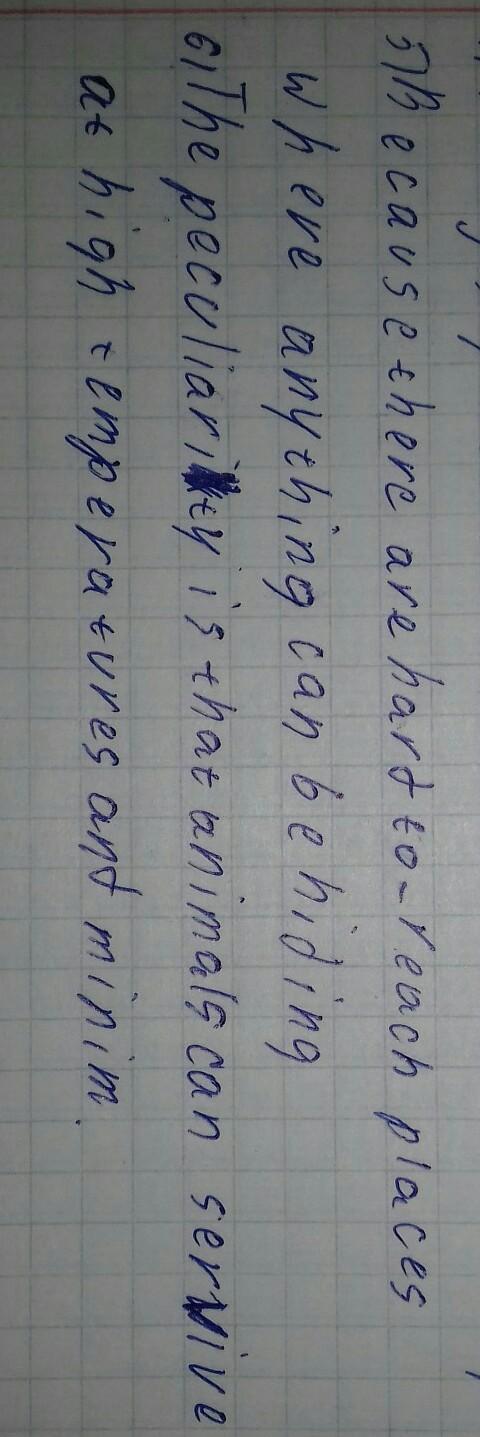 5) Because there are hard to-reach places
where anything can be hiding
6) The peculiarity is that animals can servive
at high temperatures and minim.